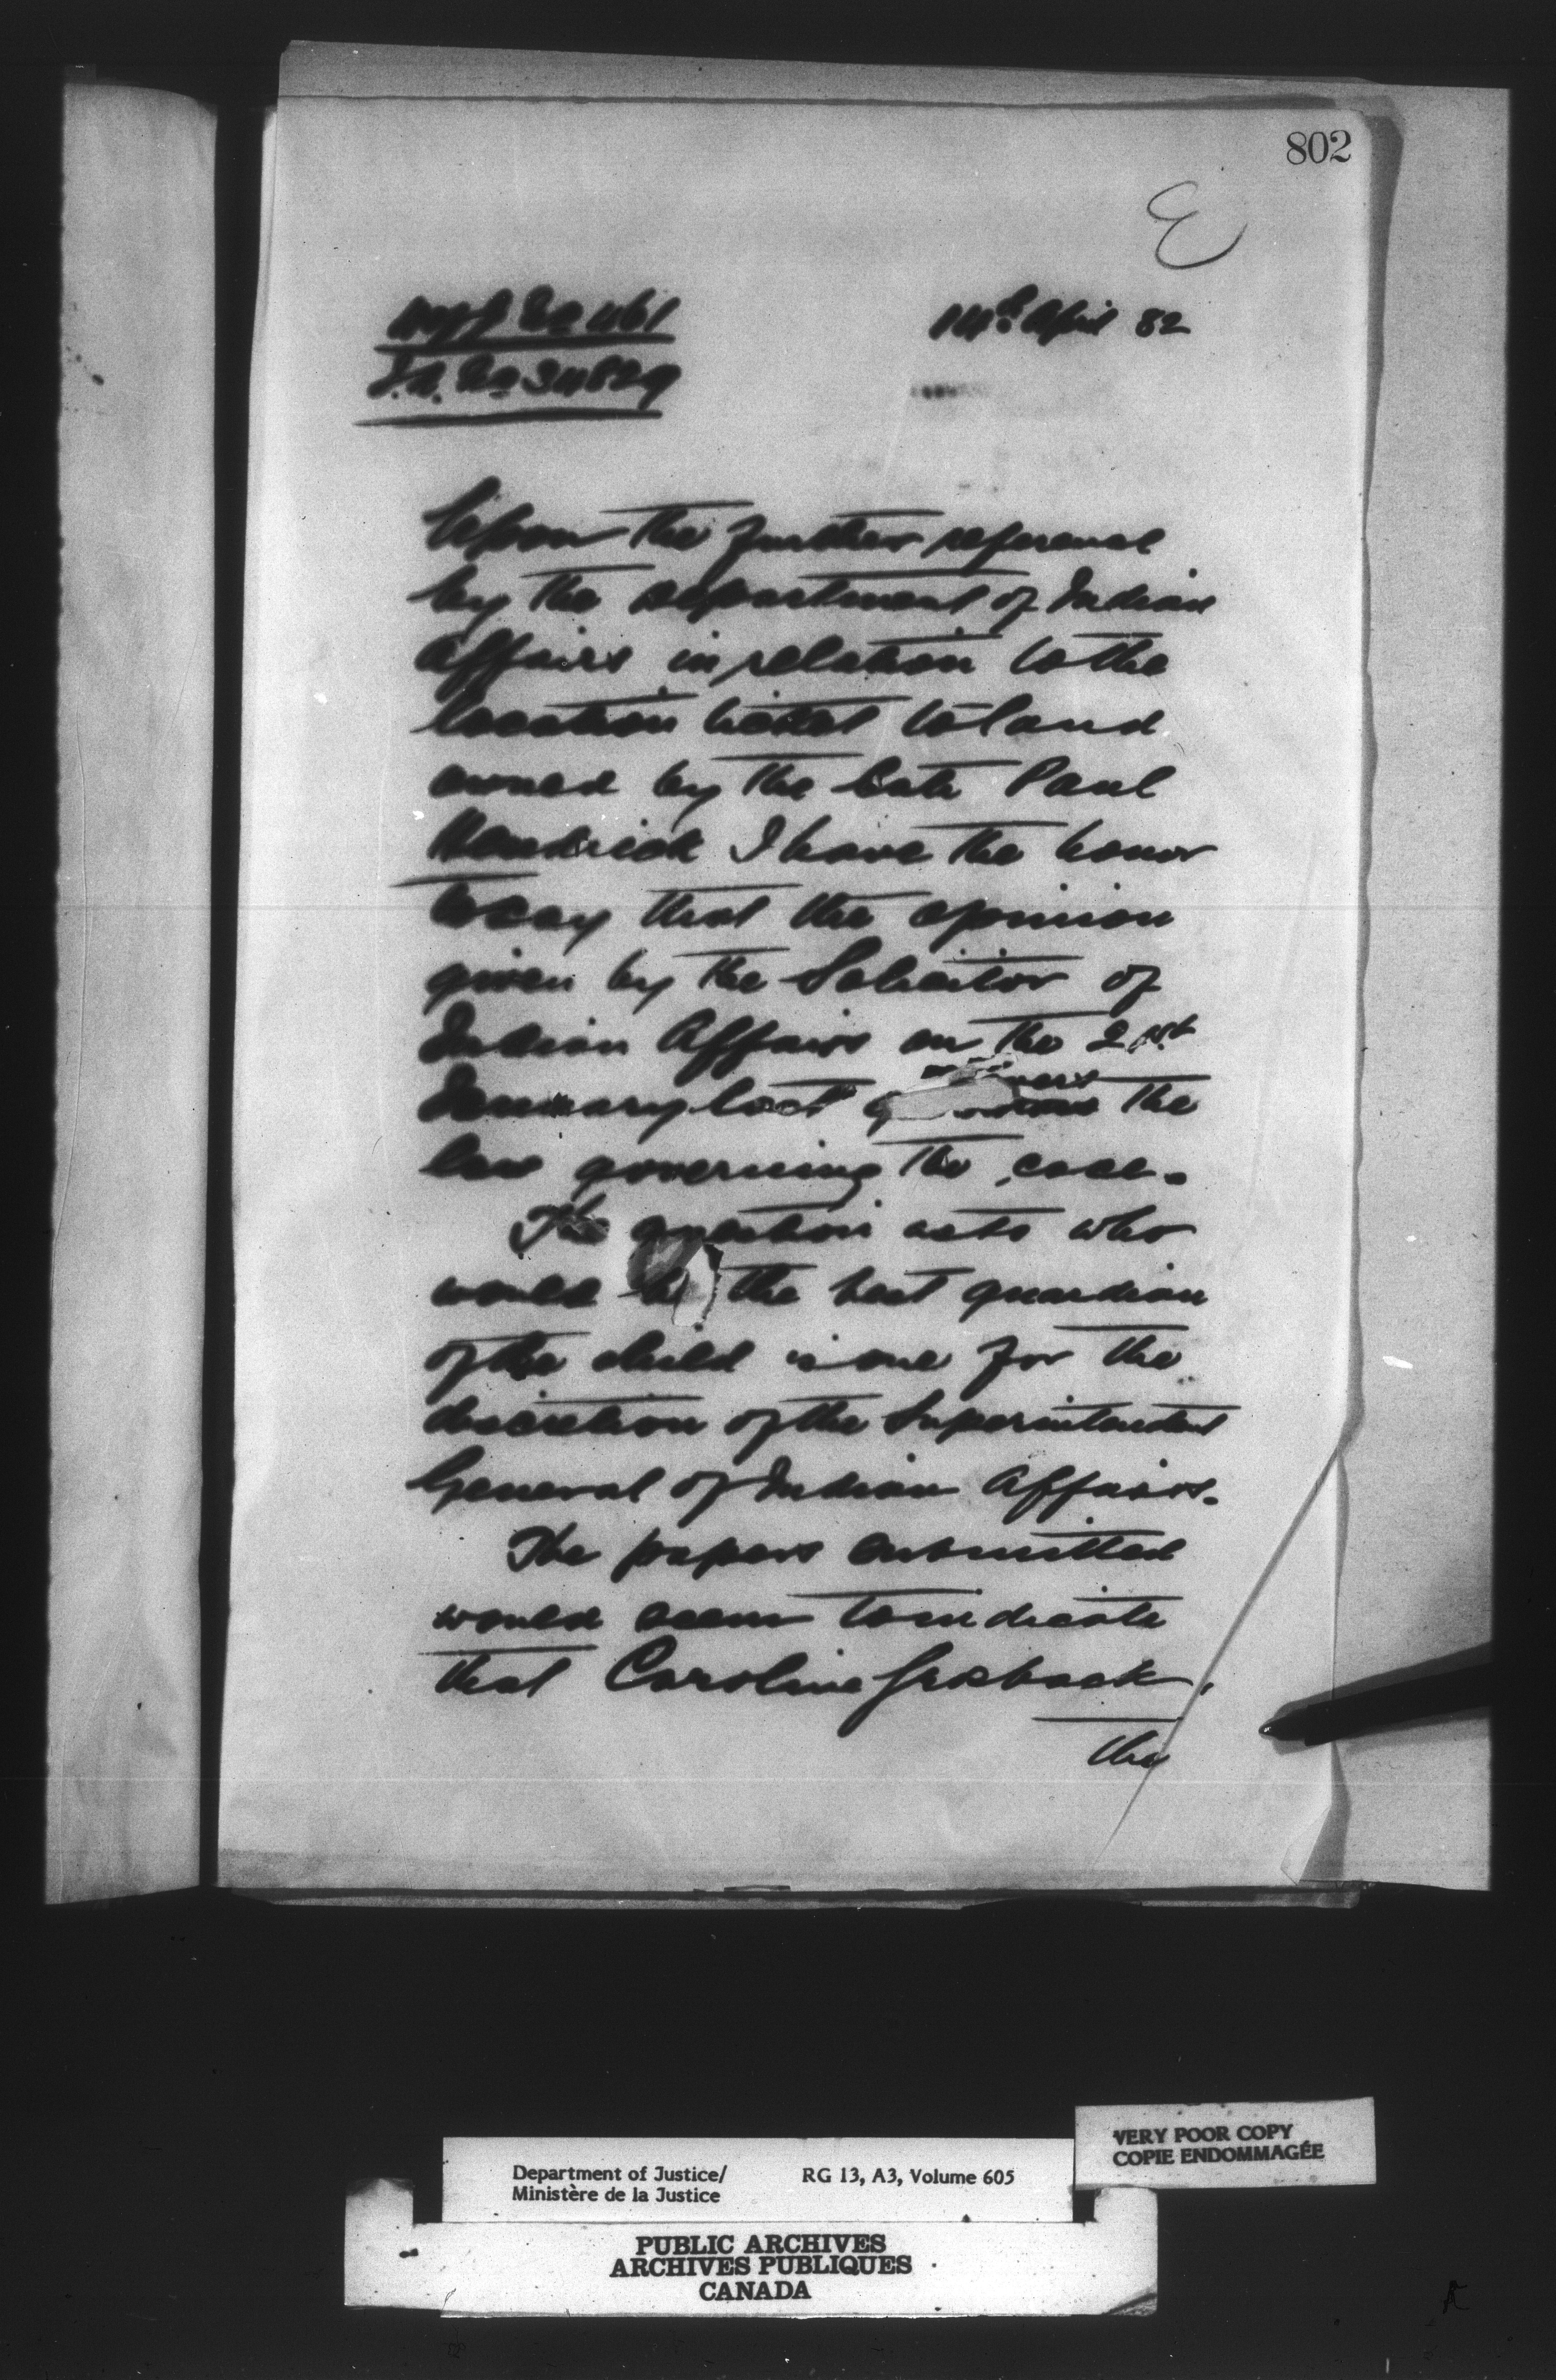 802
E
14th April 82
I.A. No 34829
Upon the further referend
by the Department of Indian
Affairs in relation to the
location ticket to land
owned by the late Paul
Hendrick I have the honor
to say that the opinion
given by the Solicitor of
Indian Affairs on the 21st
January last the
law governing the case.
The question as to who
would be the best guardian
of the child is one for the
discretion of the Superintendent
General of Indian Affairs.
The papers submitted
would seem to indicate
that Caroline
the
VERY POOR COPY
COPIE ENDOMMAGÉE
Department of Justice/ RG 13, A3, Volume 605
Ministère de la Justice
PUBLIC ARCHIVES
ARCHIVES PUBLIQUES
CANADA